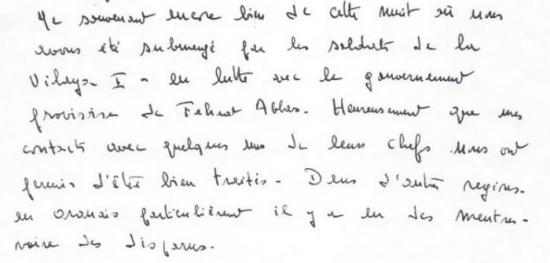 Me souvenant encore bien de cette nuit où nous
avons été submergé par les soldats de la
Vilaya I - en lutte avec le gouvernement
provisoire de Ferhat Abbas. Heureusement que mes
contacts avec quelques uns de leurs chefs nous ont
permis d'être bien traités - Dans d'autres régions.
en oranais particulièrement il y a eu des meurtres -
voire des disparus.